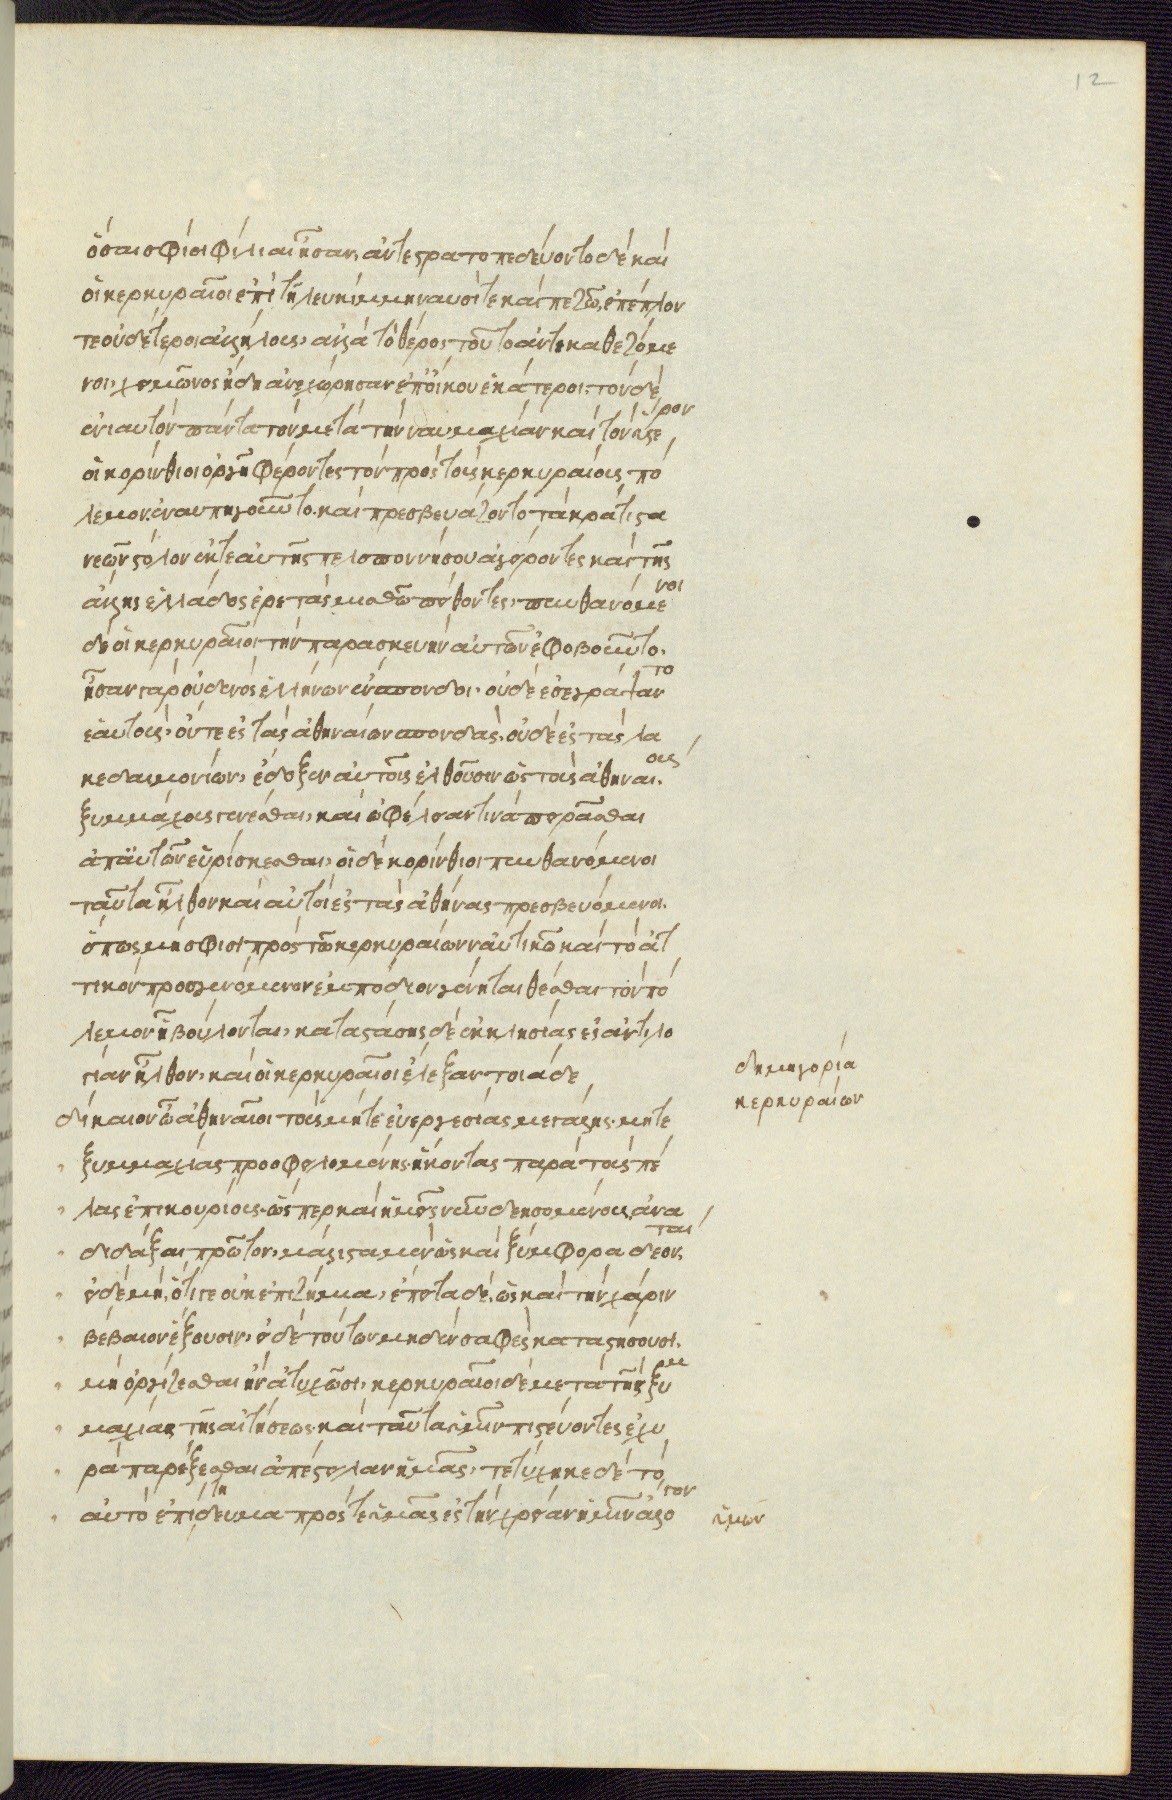 12
ὅσαι σφίσι φίλιαι ἦσαν, ἀντεστρατοπεδεύοντο δὲ καὶ
οἱ κερκυραῖοι ἐπὶ τῇ λευκίμμῃ ναυσί τε καὶ πεζῶ, ἐπέπλεον
τε οὐδέτεροι ἀλλήλοις, ἀλλὰ τὸ θέρος τοῦτο ἀντικαθεζόμε
νοι, χειμῶνος ἤδη ἀνεχώρησαν ἐπ' οἴκου ἑκάτεροι· τὸν δὲ
ἐνιαυτὸν πάντα τὸν μετὰ τὴν ναυμαχίαν καὶ τὸν ὕστερον
οἱ κορίνθιοι ὀργῇ φέροντες τὸν πρὸς τοὺς κερκυραίους πό
λεμον. ἐναυπηγοῦντο. καὶ παρεσκευάζοντο τὰ κράτιστα
νεῶν στόλον ἔκ τε αὐτῆς πελοποννήσου ἀγείροντες καὶ τῆς
ἄλλης ἑλλάδος ἐρέτας μισθῶ πείθοντες, πυνθανόμενοι
δὲ οἱ κερκυραῖοι τὴν παρασκευὴν αὐτῶν ἐφοβοῦντο.
ἦσαν γὰρ οὐδενὸς ἑλλήνων ἔνσπονδοι· οὐδὲ ἐσεγράψαντο
ἑαυτοὺς, οὔτε ἐς τὰς ἀθηναίων σπονδὰς, οὐδὲ ἐς τὰς λα
κεδαιμονίων, ἔδοξεν αὐτοῖς ἐλθοῦσιν ὡς τοὺς ἀθηναίους
ξυμμάχους γενέσθαι, καὶ ὠφέλειάν τινα πειρᾶσθαι
ἀπ' αὐτῶν εὑρίσκεσθαι, οἱ δὲ κορίνθιοι πυνθανόμενοι
ταῦτα ἦλθον καὶ αὐτοὶ ἐς τὰς ἀθήνας πρεσβευόμενοι.
ὅπως μή σφισι πρὸς τῶ κερκυραίων ναυτικῶ καὶ τὸ ἀτ
τικὸν προσγενόμενον ἐμπόδιον γένηται θέσθαι τὸν πό
λεμον ἧ βούλονται, καταστάσης δὲ ἐκκλησίας ἐς ἀντιλο
γίαν ἦλθον, καὶ οἱ κερκυραῖοι ἔλεξαν τοιάδε
δημηγορία
κερκυραίων
δίκαιον ὦ ἀθηναῖοι τοὺς μήτε εὐεργεσίας μεγάλης, μήτε
ξυμμαχίας προοφειλομένης ἥκοντας παρὰ τοὺς πέ
λας ἐπικουρίας, ὥσπερ καὶ ἡμεῖς νῦν δεησομένους, ἀνα
διδάξαι πρῶτον, μάλιστα μὲν ὡς καὶ ξύμφορα δέονται,
εἰ δὲ μὴ, ὅτι γε οὐκ ἐπιζήμια, ἔπειτα δὲ, ὡς καὶ τὴν χάριν
βέβαιον ἕξουσιν, εἰ δὲ τούτων μηδὲν σαφὲς καταστήσουσι,
μὴ ὀργίζεσθαι ἢν ἀτυχῶσι, κερκυραῖοι δὲ μετὰ τῆς ξυμ
μαχίας τῆς αἰτήσεως, καὶ ταῦτα ὑμῖν πιστεύοντες ἐχυ
ρὰ παρέξεσθαι ἀπέστειλαν ἡμᾶς, τετύχηκε δὲ τὸ
αὐτὸ ἐπιτήδευμα πρός τε ὑμᾶς ἐς τὴν χρείαν ἡμῖν ἄλογον
ἡμῶν